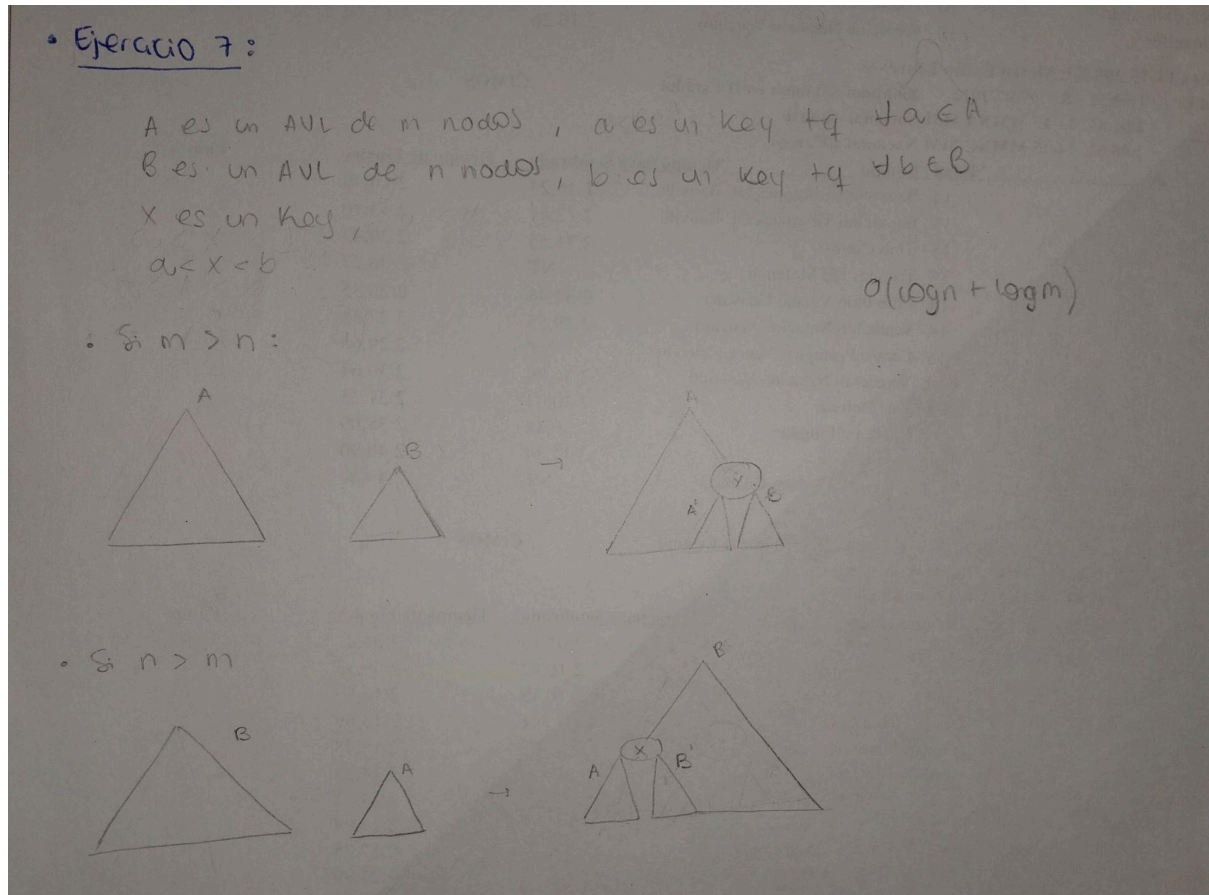 • Ejercicio 7:
A es un AVL de m nodos, a es un key tq ∀a ∈ A
B es un AVL de n nodos, b es un key tq ∀b ∈ B
X es un key,
a < x < b
O(logn + logm)
• Si m > n:
A
B
→
A
A'
B
• Si n > m
B
A
→
B
A
X
B'